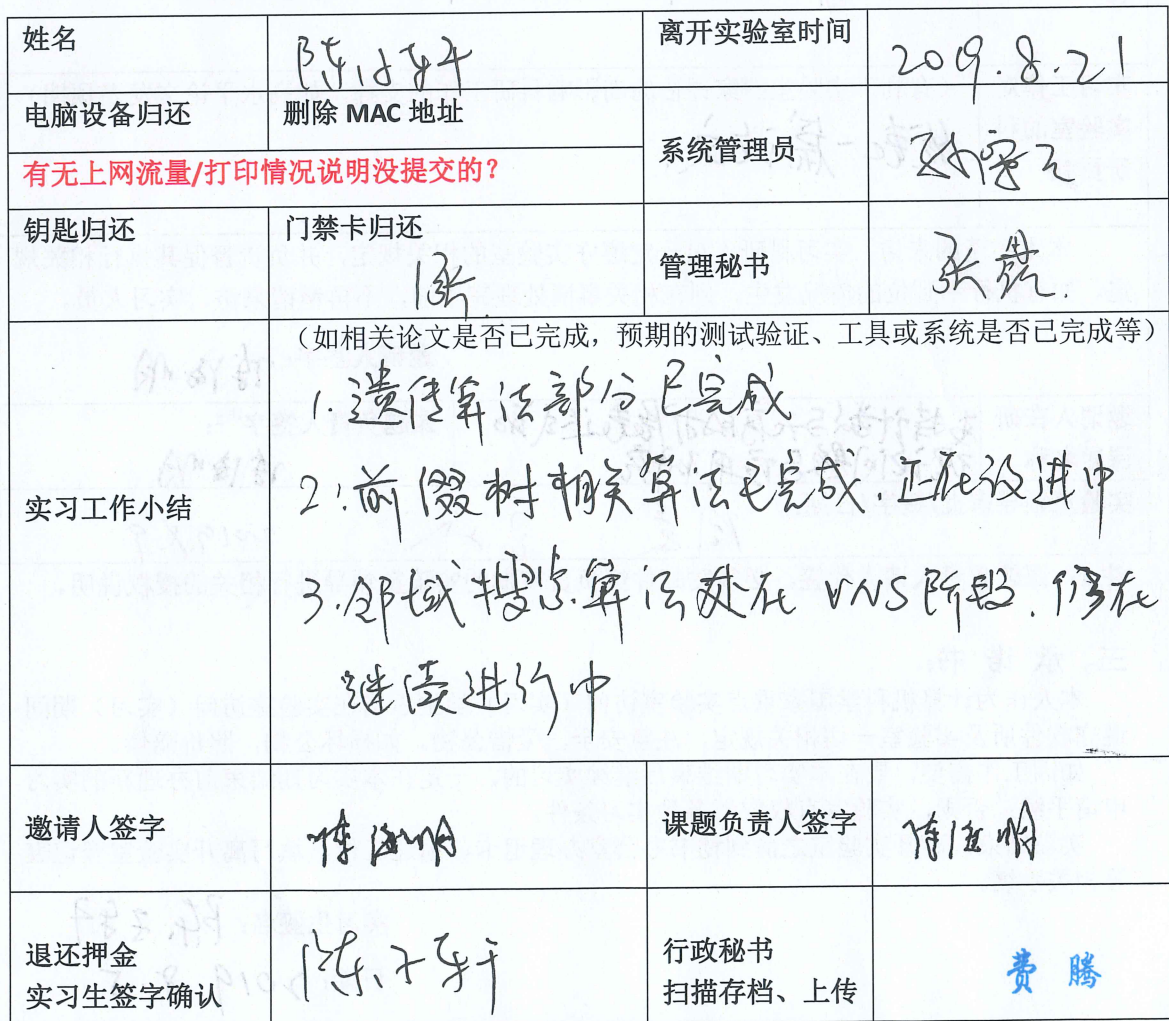 姓名
离开实验室时间
2019.8.21
电脑设备归还
删除 MAC 地址
系统管理员
有无上网流量/打印情况说明没提交的?
钥匙归还
门禁卡归还
管理秘书
1张
实习工作小结
(如相关论文是否已完成，预期的测试验证、工具或系统是否已完成等)
1.遗传算法部分已完成
2.前缀树相关算法已完成.正在改进中
3.邻域搜索算法处在 VNS阶段.
继续进行中
邀请人签字
课题负责人签字
退还押金
实习生签字确认
行政秘书
扫描存档、上传
费腾